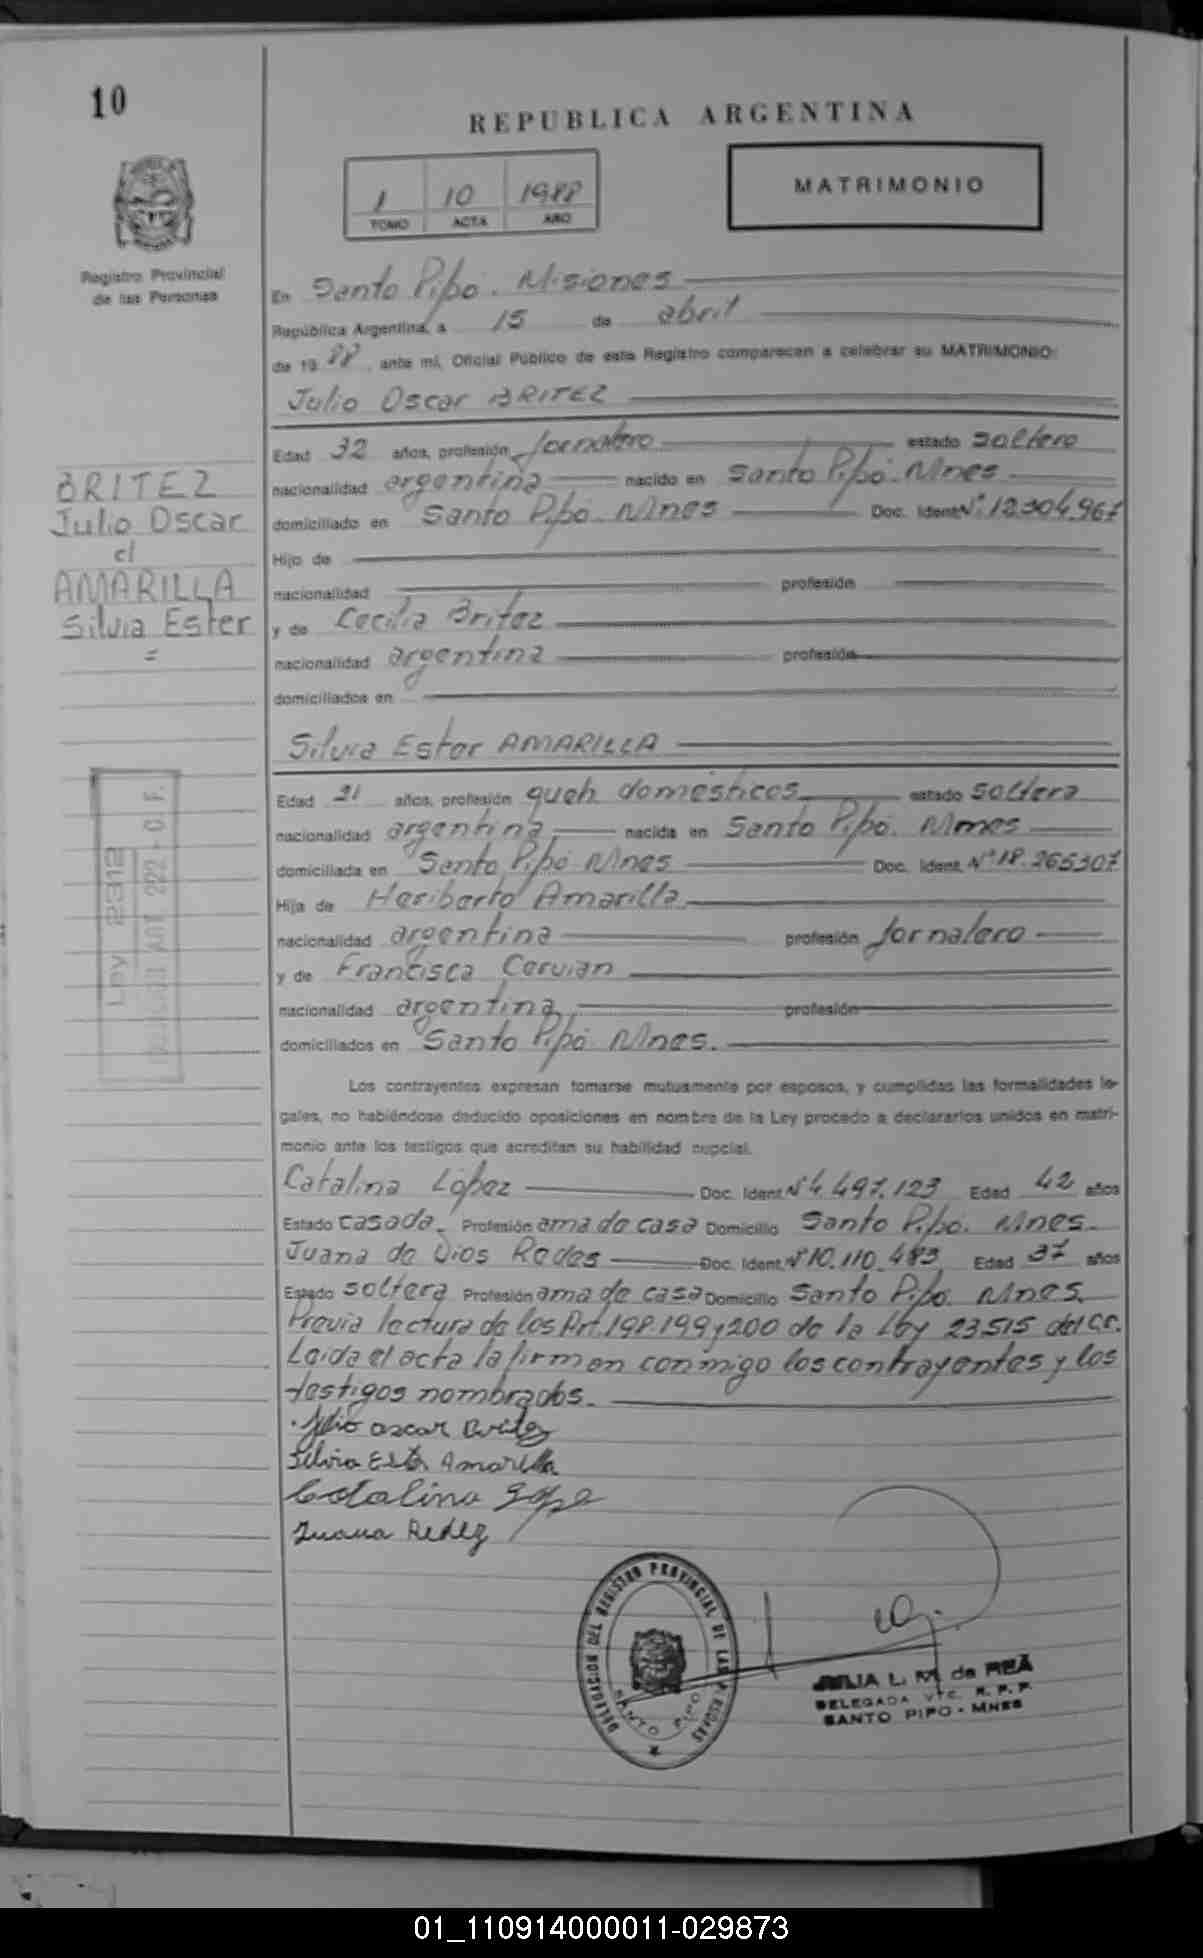 10
REPUBLICA ARGENTINA
1 10 1988
TOMO ACTA AÑO
MATRIMONIO
Registro Provincial
de las Personas
En Santo Pipó. Misiones
República Argentina, a 15 de abril
de 19 88, ante mí, Oficial Público de este Registro comparecen a celebrar su MATRIMONIO:
Julio Oscar BRITEZ
Edad 32 años, profesión Jornalero estado soltero
nacionalidad argentina nacido en Santo Pipó. Mnes
domiciliado en Santo Pipó. Mnes Doc. Ident. Nº: 12.304.967
Hijo de
nacionalidad profesión
y de Cecilia Britez
nacionalidad argentina profesión
domiciliados en
BRITEZ
Julio Oscar
c/
AMARILLA
Silvia Ester
=
Silvia Ester AMARILLA
Edad 21 años, profesión queh. domésticos estado soltera
nacionalidad argentina nacida en Santo Pipó. Mnes
domiciliada en Santo Pipó Mnes Doc. Ident. Nº 18.265307
Hija de Heriberto Amarilla
nacionalidad argentina profesión Jornalero
y de Francisca Cervian
nacionalidad argentina profesión
domiciliados en Santo Pipó Mnes.
Ley 2312
ART 222 - C.F.
Los contrayentes expresan tomarse mutuamente por esposos, y cumplidas las formalidades le-
gales, no habiéndose deducido oposiciones en nombre de la Ley procedo a declararlos unidos en matri-
monio ante los testigos que acreditan su habilidad nupcial.
Catalina López Doc. Ident. Nº 4.497.123 Edad 42 años
Estado casada. Profesión ama de casa Domicilio Santo Pipó. Mnes.
Juana de Dios Redes Doc. Ident. Nº 10.110.483 Edad 37 años
Estado soltera Profesión ama de casa Domicilio Santo Pipó. Mnes.
Previa lectura de los Art. 198.199 y 200 de la Ley 23515 del C.C.
Leida el acta la firman conmigo los contrayentes y los
testigos nombrados.
Julio oscar Britez
Silvia Ester Amarilla
Catalina Lope
Juana Redez
DELEGACION DEL REGISTRO PROVINCIAL DE LAS PERSONAS
SANTO PIPO
JULIA L. M. de REÁ
DELEGADA VTC. R. P. P.
SANTO PIPO - MNES
01_110914000011-029873